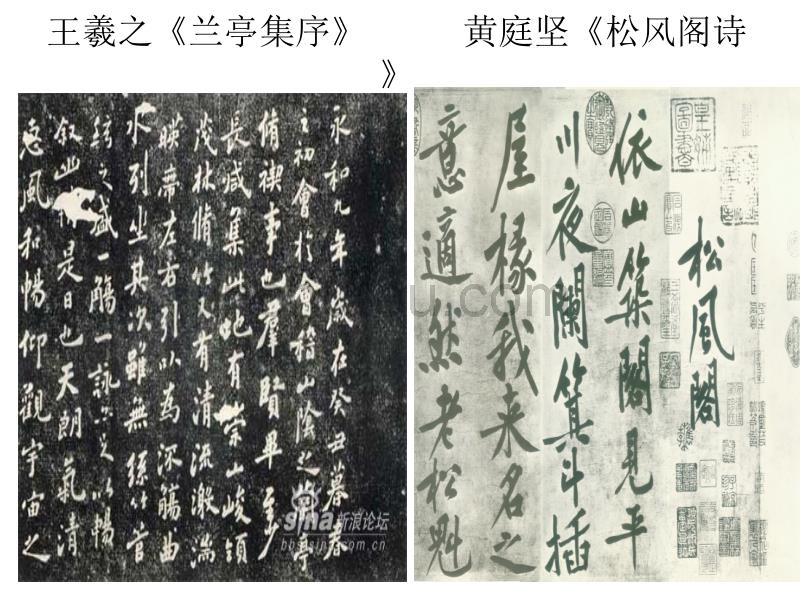 王羲之《兰亭集序》
黄庭坚《松风阁诗
》
永和九年歲在癸丑暮春
之初會于會稽山陰之蘭亭
脩禊事也羣賢畢至少
長咸集此地有崇山峻領
茂林脩竹又有清流激湍
暎帶左右引以為流觴曲
水列坐其次雖無絲竹管
絃之盛一觴一詠亦足以暢
敘幽情是日也天朗氣清
惠風和暢仰觀宇宙之
sina新浪论坛
bbs.sina.com.cn
松風閣
依山築閣見平
川夜闌箕斗插
屋椽我来名之
意適然老松魁